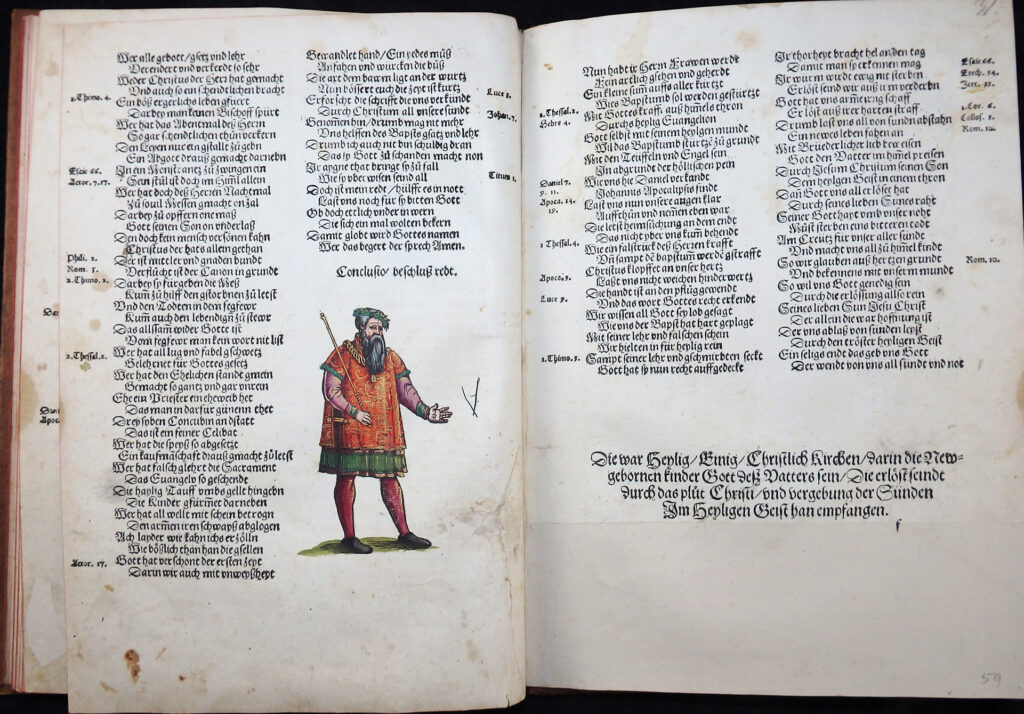 Wer alle gebott/gsetz und lehr
Verendert und verkerdt so sehr
Weder Christus der Herr hat gemacht
Vnd auch so ein schendlichen bracht
1. Thimo. 4.
Ein böß ergerlichs leben gfuert
Darbey man keinen Bischoff spürt
Wer hat das Abentmal deß Herrn
So gar schendtlichen thun verkern
Den Leyen nur ein gstallt zu gebn
Ein Abgott drauß gemacht darnebn
Esaie 66.
In ein Monstrantz zu zwingen ein
Actor. 7.17.
Sein stul ist doch im Himl allein
Wer hat doch deß Herren Nachtmal
Zu souil Messen gmacht on zal
Darbey zu opffern one maß
Gott seinen Son on vnderlaß
Den doch kein mensch versonen kahn
Christus der hats allein gethan
Phili. 2.
Der ist mittler und gnaden bundt
Rom. 5.
Verflucht ist der Canon in grundt
2. Thimo. 2.
Darbey sy fürgeben die Meß
Kum zu hilff den gstorbnen zu letst
Vnd den Todten in dem fegfewr
Kum auch den lebendign zu stewr
Das allsam wider Gotte ist
Vom fegfewr man kein wort nit list
2. Thessal. 2.
Wer hat all lug und fabel gschwetz
Gelehrnet für Gottes gsetz
Wer hat den Ehelichen standt gmein
Gemacht so gantz und gar vnrein
Ehe ein Priester ein eheweib het
Das man in darfür günenn thet
Drey syben Concubin an dstatt
Das ist ein feiner Celibat
Wer hat die speyß so abgesetzt
Ein kaufmaschafft drauß gmacht zu letst
Wer hat falsch glehrt die Sacrament
Das Euangely so geschendt
Die haylig Tauff vmbs gellt hingebn
Die Kinder gfürmet darneben
Wer hat all wellt mit schein betrogn
Den armen iren schwayß abglogen
Ach layder wie kahn ichs erzölln
Wie bößlich than han die gsellen
Actor. 17.
Gott hat verschont der ersten zeyt
Darin wir auch mit vnweyßheyt
Gewandlet hand/Ein yedes muß
An fahen und würcken die buß
Die axt dem bawm ligt an der wurtz
Luce 3.
Nun bössert euch die zeyt ist kurtz
Erforscht die schrifft die uns verkundt
Johan. 7.
Durch Christum all unsere sundt
Genomen hin/drumb wag nit mehr
Vns helffen des Bapsts gsatz und lehr
Drumb ich auch nit bin schuldig dran
Das sy Gott zu schanden macht non
Ir aygne that brings so zu fall
Titum 1.
Wie sy vber wisen send all
Doch ist mein redt/hülffe es in nott
Last uns noch für sy bitten Gott
Ob doch etlich under in wern
Die sich ein mal wolten bekern
Damit globt wird Gottes namen
Wer das begert der sprech Amen.
Conclusio/beschluß redt.
Nun habt ir Herrn Frawen werdt
Fein artlich gsehen und geherdt
Ein kleine sum auffs aller kürtzt
Wies Bapstumb sol werden gestürtzt
2. Thessal. 2.
Mit Gottes krafft auß himels thron
Hebre 4.
Durchs heylig Euangelion
Gott selbst mit seinem heylgen mundt
Wil das Bapstumb stürtze zu grundt
Mit den Teüffeln und Engel sein
In abgrundt der höllischen pein
Daniel 7.
Wie vns die Daniel verkundt
9. 11.
Johannis Apocalipsis findt
Apoca. 14.
Last vns nun vnsere augen klar
19.
Auffthun und nemen eben war
Die letst heimsuchung an dem endt
Das nicht vber uns kum behendt
1 Thessal. 4.
Wie ein falstrick deß Herren krafft
Vn sampt de bapstum werde gstrafft
Apoca. 3.
Christus klopffet an vnser hertz
Laßt vns nicht weichen hinderwertz
Luce 9.
Die handt ist an den pflug gewendt
Vnd das wort Gottes recht erkendt
Wir wissen all Gott sey lob gesagt
Wie vns der Bapst hat hart geplagt
Mit seiner lehr und falschen schein
Wir hielten in für heylig rein
1. Thimo. 5.
Sampt seiner lehr und gschmirbten seckt
Gott hat sy nun recht auffgedeckt
Ir thorheyt bracht hel an den tag
Damit man sy erkennen mag
Esaie 66.
Ir wurm wirdt ewig nit sterben
Ezech. 14.
Erlöst send wir auß irm verderbn
Jere. 23.
Gott hat vns arme irrig schaff
Erlöst auß irer harten straff
1. Cor. 6.
Drumb last vns all von sunden abstahn
Collos. 3.
Ein newes leben fahen an
Rom. 12.
Mit Brüederlicher lieb beweisen
Gott den Vatter im himel preisen
Durch Jesum Christum seinen Son
Dem heylgen Geist in einem thron
Dan Gott vns all erlöset hat
Durch seines lieben Sunes raht
Seiner Gotthayt vmb vnser noht
Must sterben eins bitteren todt
Am Creutz für vnser aller sundt
Vnd macht vns all zu himel kindt
So wir glauben auß hertzen grundt
Rom. 10.
Vnd bekennens mit vnserm mundt
So wil vns Gott genedig sein
Durch die erlössung also rein
Seines lieben Sun Jesu Christ
Der allein die war hoffnung ist
Der vns ablaß von sünden leyst
Durch den tröster heyligen Geist
Ein seligs endt das geb vns Gott
Der wendt von vns all sundt und not
Die war Heylig/Einig/Christlich Kirchen/darin die New-
gebornen kinder Gott deß Vatters sein/Die erlöst seindt
durch das plüt Christi/vnd vergebung der Sünden
Im Heyligen Geist han empfangen.
59